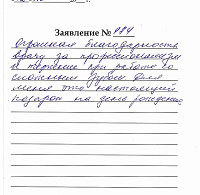 Заявление № 984
Огромная благодарность
врачу за профессионализм
и терпение при работе со
сложным зубом. Для
меня это настоящий
подарок на день рождения